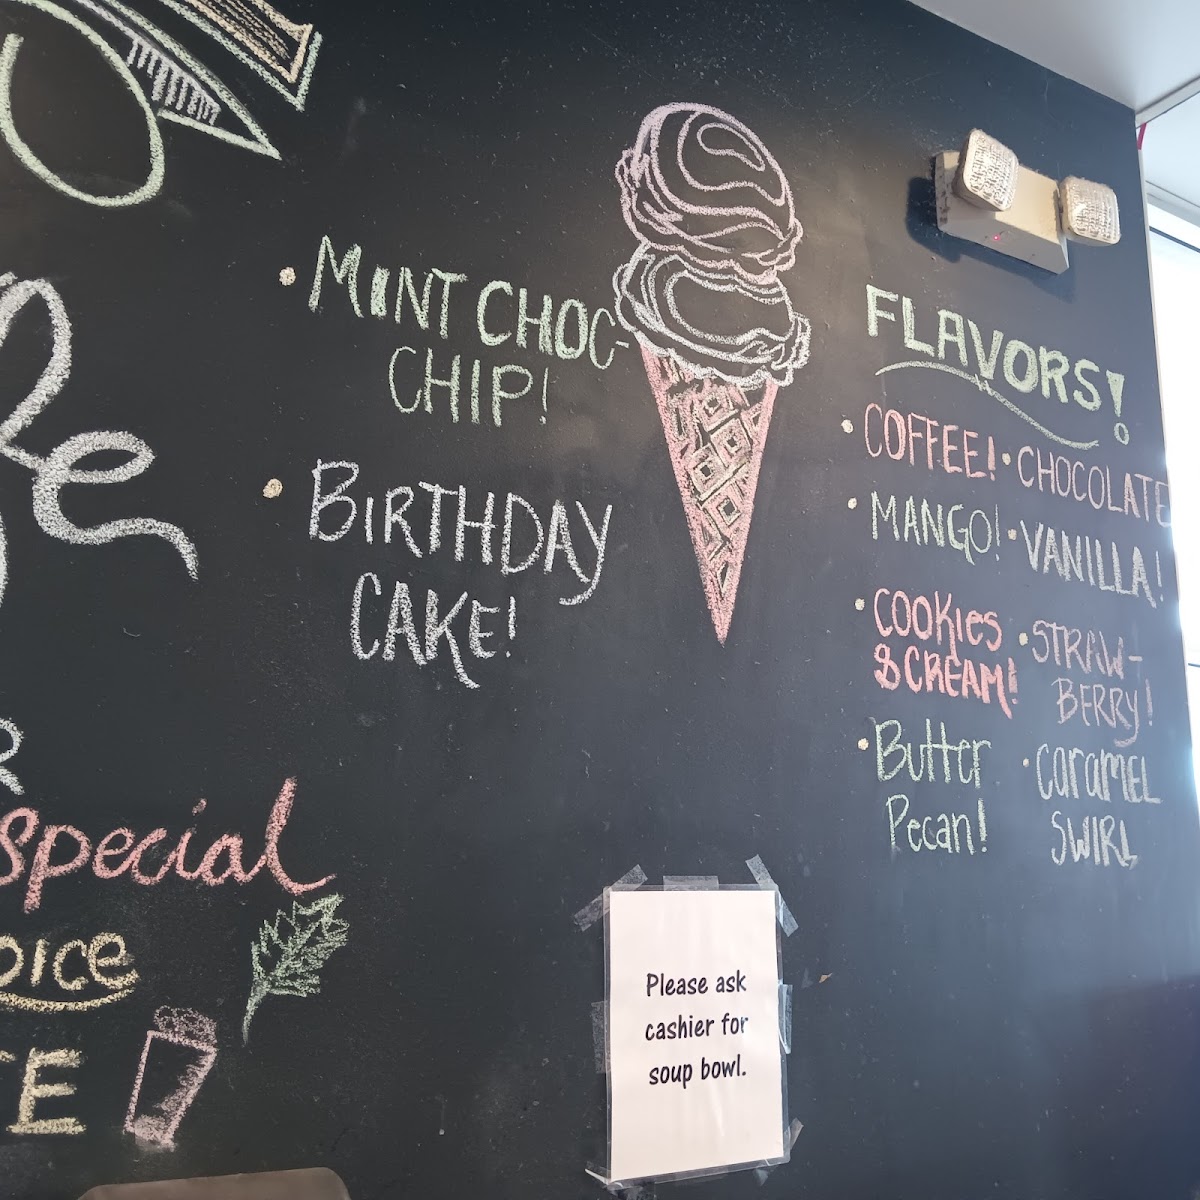 MINT CHOC-
CHIP!
BIRTHDAY
CAKE!
FLAVORS!
COFFEE!
CHOCOLATE
MANGO!
VANILLA!
COOKIES
& CREAM!
STRAW-
BERRY!
Butter
Pecan!
CARAMEL
SWIRL
special
Please ask
cashier for
soup bowl.